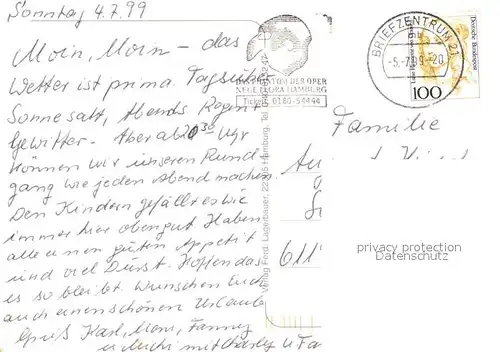 Sonntag 4.7.99
Moin, Moin - das
Wetter ist prima Tagsüber
Sonne satt, Abends Regen
Gewitter. Aber ab 20³⁰ Uhr
können wir unseren Rund
gang wie jeden Abend machen
Den Kindern gefällt es wie
immer hier oben gut. Haben
alle einen guten Appetit
und viel Durst. Hoffen das
es so bleibt. Wünschen Euch
auch einen schönen Urlaub
Gruß Karl, Moni, Fanny
u. Muchi mit Charly u Fa
PHANTOM DER OPER
NEUE FLORA HAMBURG
Tickets 0180-54444
BRIEFZENTRUM 21
mb
-5.-7.99-20
100
Deutsche Bundespost
Verlag Ferd. Lagerbauer, 22 Hamburg. Tel
Familie
611
privacy protection
Datenschutz